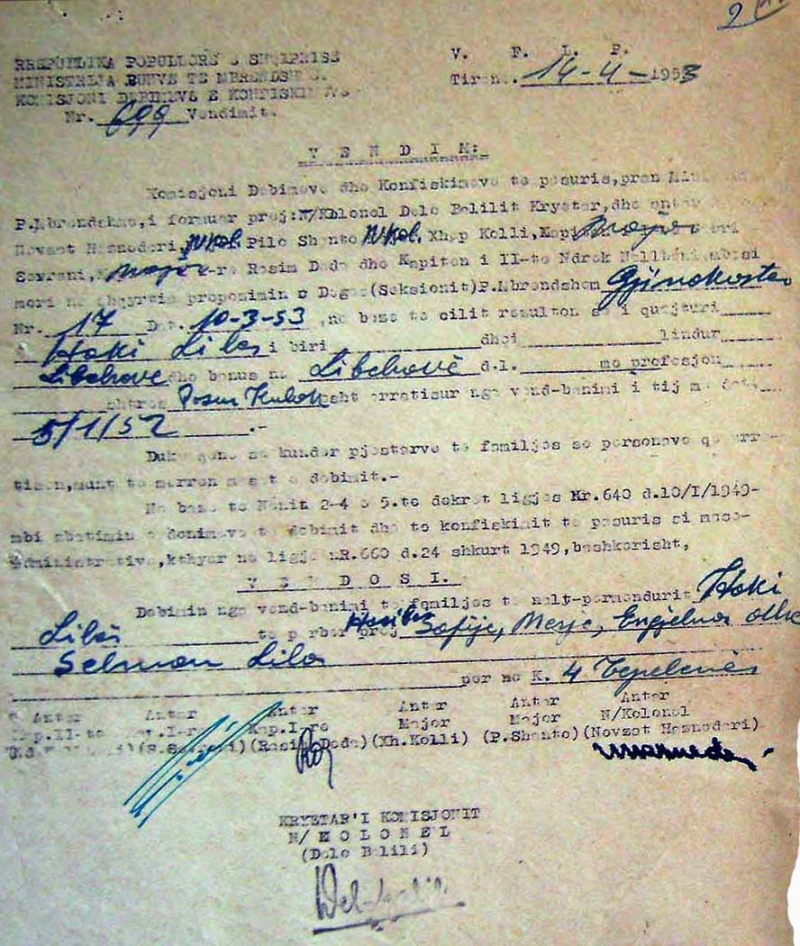 2
RREPUBLIKA POPULLORE E SHQIPRISE
MINISTRIJA PUNVE TE MBRENDSHME
KOMISJONI DEBIMEVE E KONFISKIMEVE
Nr. 699 Vendimit.
V. F. L. P.
Tirane. 14-4-1953
V E N D I M:
Komisjoni Debimeve dhe Konfiskimeve te pasuris, pran
P.Mbrendshme, i formuar prej: N/Kolonel Delo Balilit Kryetar, dhe antar
Nevzat Haznedari, N/Kol. Pilo Shanto N/Kol. Xhep Kolli, Kap. Major
Savrani, major Rasim Dede dhe Kapiten i II-te Ndrek mbasi
mori ne shqyrtim propozimin e Deges (Seksionit) P.Mbrendshem Gjinokaster
Nr. 17 Dat. 10-3-53, ne baze te cilit rezulton se i quajturi
Haki Lilos i biri dhe i lindur
Libehovë dhe banus ne Libehovë d.l. me profesjon
shtres Posur Kulak asht arratisur nga vend-banimi i tij me date
5/1/52 .-
Duke qene se kunder pjestarve te familjes se personave qe arra-
tisen, munt te merren masat e debimit.-
Ne baze te Nenit 2-4 e 5. te dekret ligjes Nr.640 d.10/I/1949-
mbi zbatimin e denimeve te debimit dhe te konfiskimit te pasuris si mase-
administrative, kthyer ne ligje nR.660 d.24 shkurt 1949, bashkarisht,
V E N D O S I.
Debimin nga vend-banimi te familjes te nalt-permendurit Haki
Lilos te perber prej Sofije, Merje, Engjelina dhe
Selman Lilos
per ne K. 4 Tepelenës
Antar Antar Antar Antar Antar Antar
Kap.II-te Kap.I-re Kap.I-re Major Major N/Kolonel
(Rasim Dede) (Xh.Kolli) (P.Shanto) (Nevzat Haznedari)
KRYETAR'I KOMISJONIT
N/ K O L O N E L
(Delo Balili)